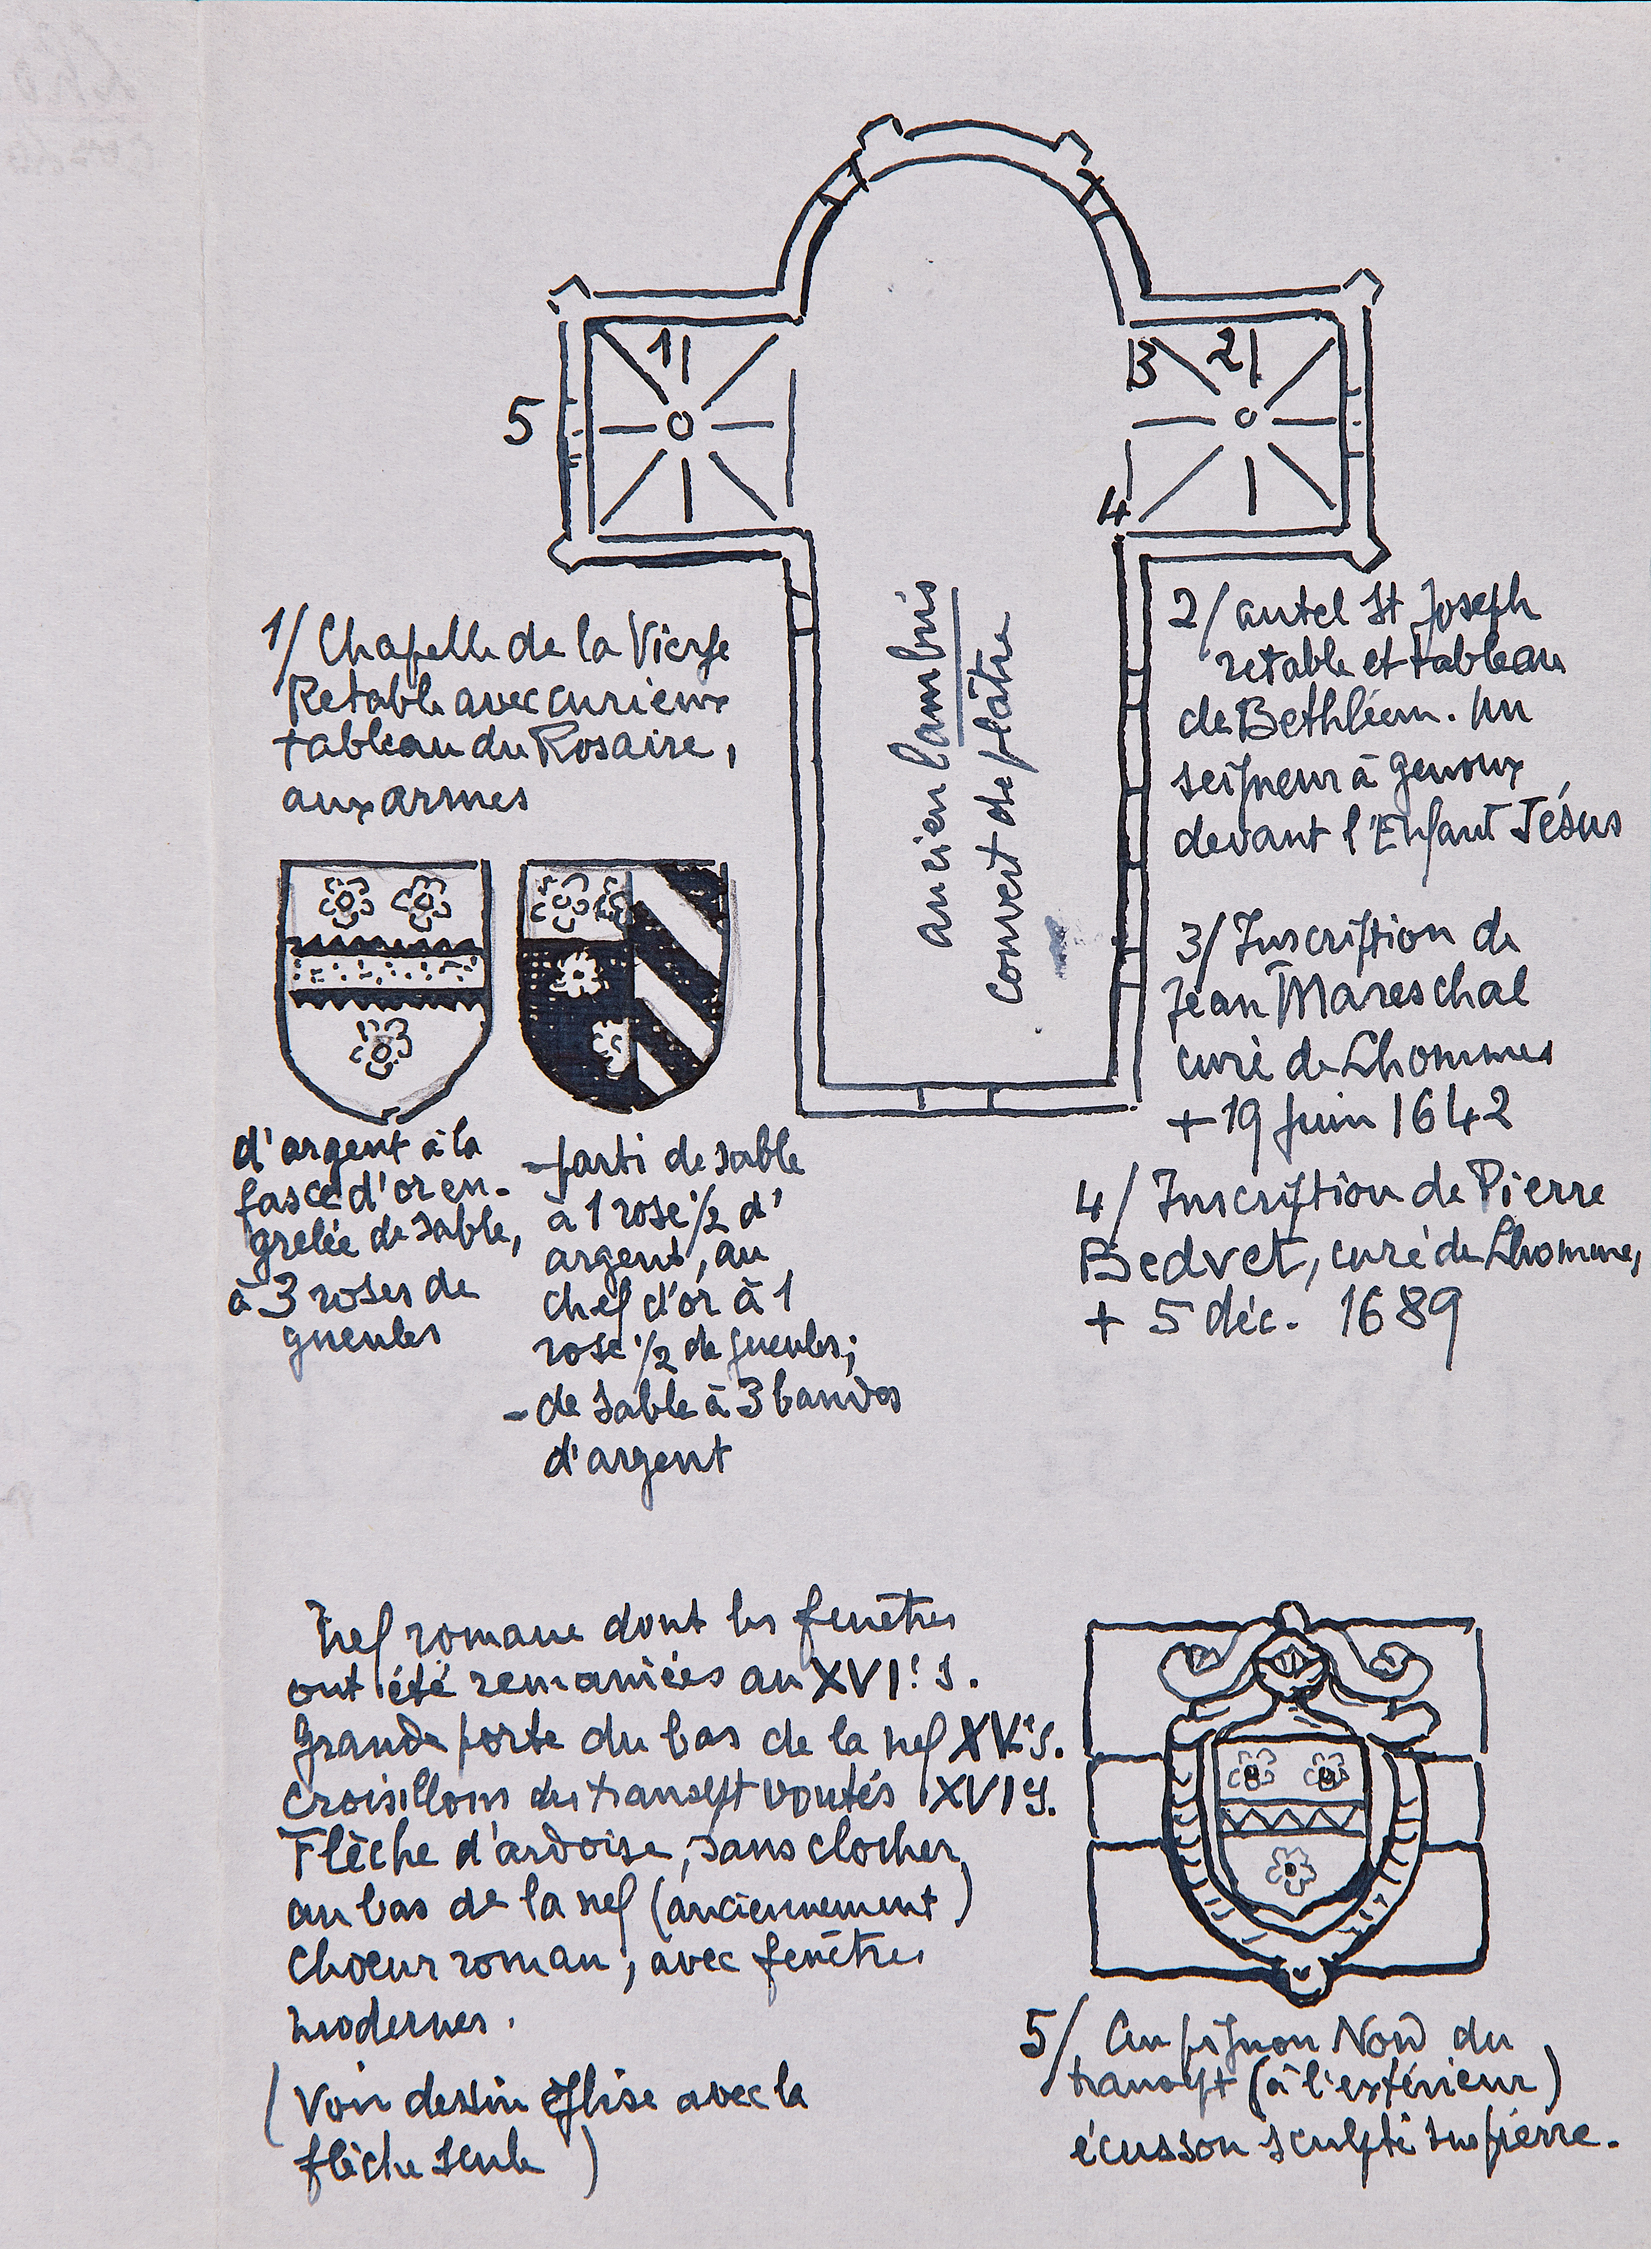 1
2
3
5
4
ancien lambris
couvert de plâtre
1/ Chapelle de la Vierge
Retable avec curieux
tableau du Rosaire,
aux armes
d'argent à la
fasce d'or en-
grelée de sable,
à 3 roses de
gueules
- parti de sable
à 1 rose 1/2 d'
argent, au
chef d'or à 1
rose 1/2 de gueules;
- de sable à 3 bandes
d'argent
2/ autel St Joseph
retable et tableau
de Bethléem. Un
seigneur à genoux
devant l'Enfant Jésus
3/ Inscription de
Jean Mareschal
curé de Lhommes
+ 19 juin 1642
4/ Inscription de Pierre
Bedvet, curé de Lhomme,
+ 5 déc. 1689
Nef romane dont les fenêtres
ont été remaniées au XVIe s.
Grande porte du bas de la nef XVe s.
Croisillons du transept voutés XVI s.
Flèche d'ardoise, sans clocher,
au bas de la nef (anciennement)
Choeur roman, avec fenêtres
modernes.
(Voir dessin église avec la
flèche seule)
5/ Au pignon Nord du
transept (à l'extérieur)
écusson sculpté sur pierre.